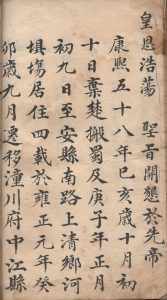 皇恩浩蕩　聖旨開懇於先帝
康熙五十八年己亥歲十月初
十日棄楚搬蜀及庚子年正月
初九日至安縣南路上清鄉河
壩塲居住四載於雍正元年癸
卯歲九月遷移潼川府中江縣